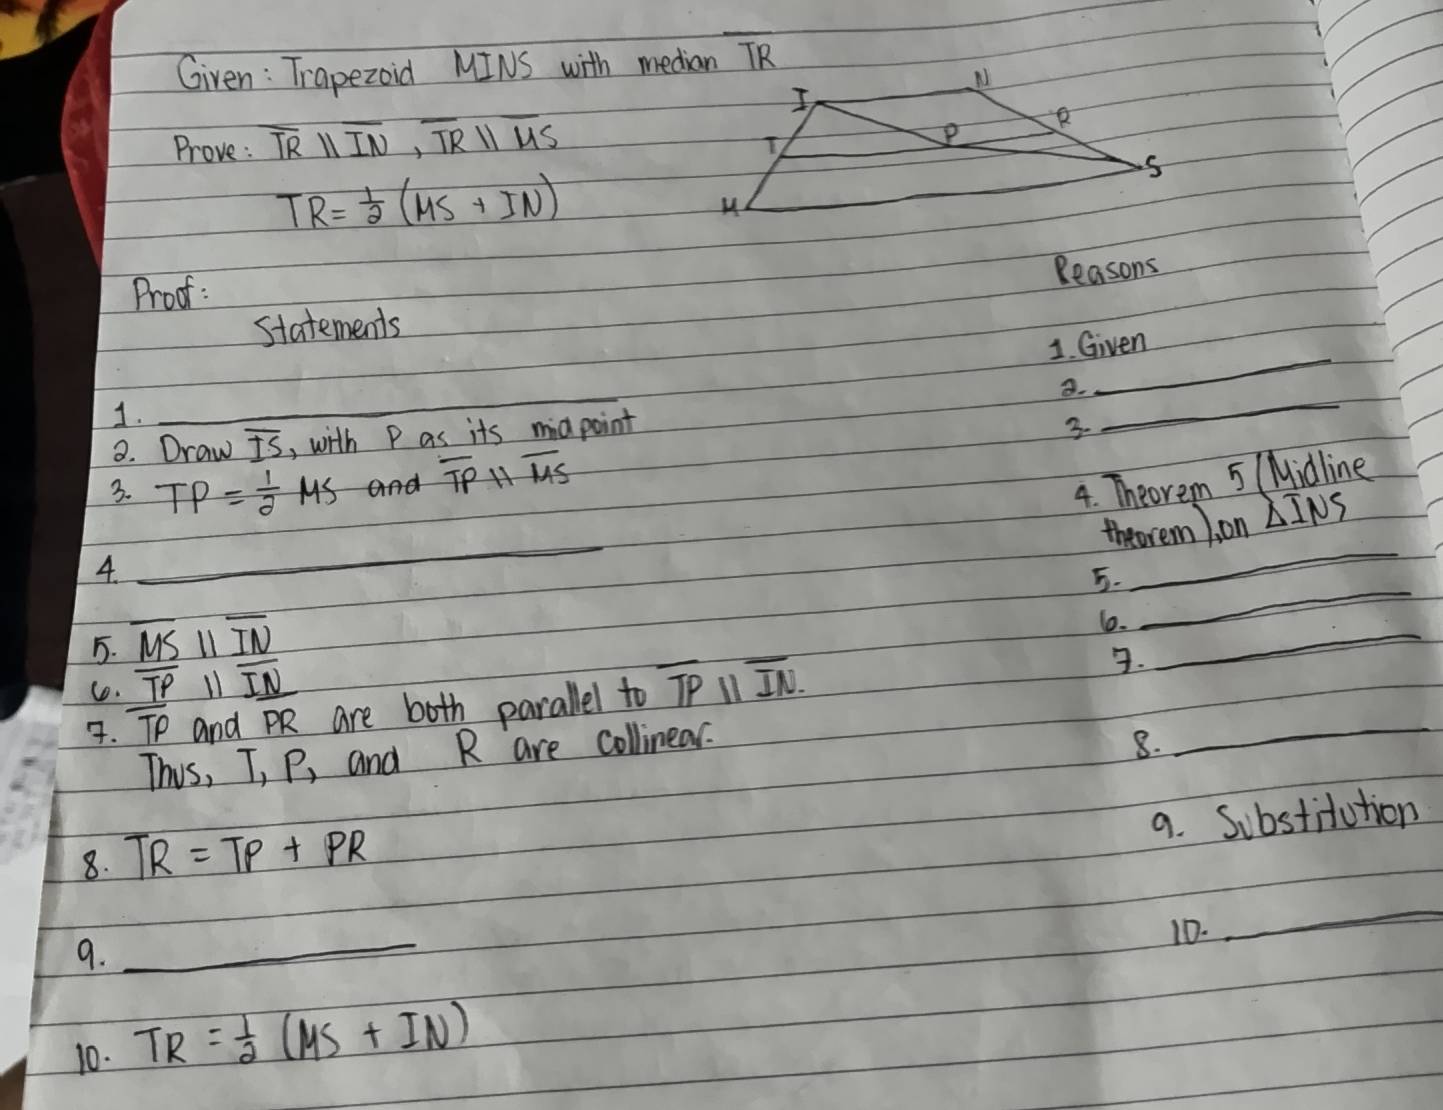 Given: Trapezoid MINS with median T̅R̅
Prove: T̅R̅ || I̅N̅, T̅R̅ || M̅S̅
TR = 1/2 (MS + IN)
I N
T P R
M S
Proof:
Statements
Reasons
1. ____________
1. Given
2. Draw I̅S̅, with P as its midpoint
2. ____________
3. TP = 1/2 MS and T̅P̅ || M̅S̅
3. ____________
4. ____________
4. Theorem 5 (Midline
theorem), on △INS
5. M̅S̅ || I̅N̅
5. ____________
6. T̅P̅ || I̅N̅
6. ____________
7. T̅P̅ and P̅R̅ are both parallel to T̅P̅ || I̅N̅.
Thus, T, P, and R are collinear.
7. ____________
8. TR = TP + PR
8. ____________
9. ____________
9. Substitution
10. TR = 1/2 (MS + IN)
10. ____________